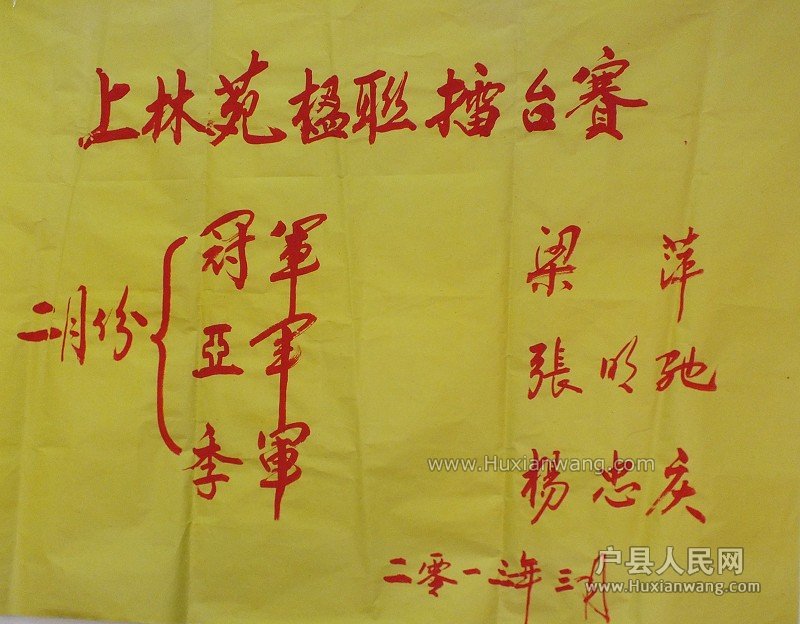 上林苑楹联擂台赛
二月份
冠軍 梁萍
亞軍 張明馳
季軍 杨忠庆
www.Huxianwang.com
二零一三年三月
户县人民网
Huxianwang.com